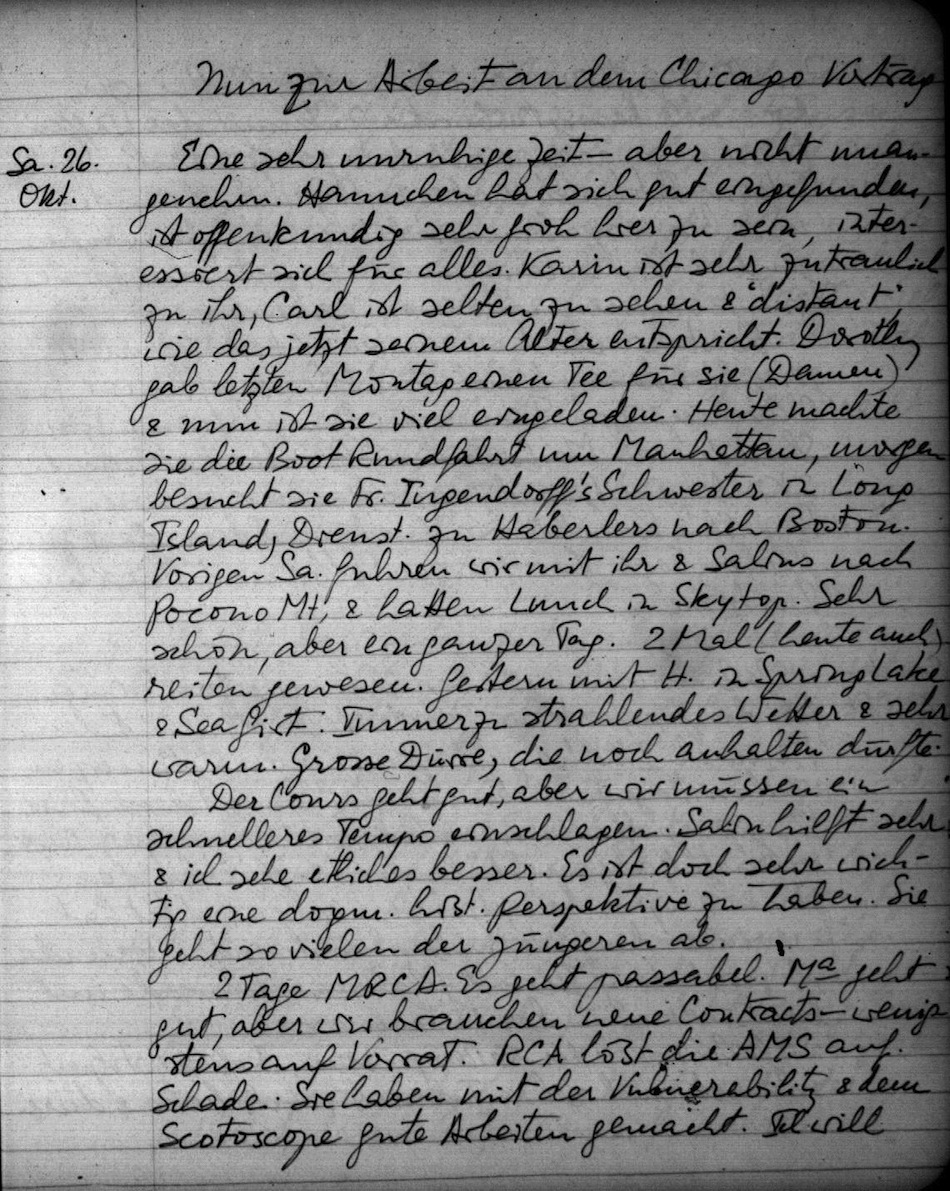 Nun zur Arbeit an dem Chicago Vortrag
Sa. 26.
Okt.
Eine sehr unruhige Zeit – aber nicht unan-
genehm. Hannchen hat sich gut eingefunden,
ist offenkundig sehr froh hier zu sein, inter-
essiert sich für alles. Karin ist sehr zutraulich
zu ihr, Carl ist selten zu sehen & "distant",
wie das jetzt seinem Alter entspricht. Dorothy
gab letzten Montag einen Tee für sie (Damen)
& nun ist sie viel eingeladen. Heute machte
sie die Boot Rundfahrt um Manhattan, morgen
besucht sie Fr. Schwester in Long
Island, Dienst. zu Haberlers nach Boston.
Vorigen Sa. fuhren wir mit ihr & Salins nach
Pocono Mt, & hatten Lunch in Skytop. Sehr
schön, aber ein ganzer Tag. 2 Mal (heute auch)
reiten gewesen. Gestern mit H. in Spring Lake
& Sea Girt. Immerzu strahlendes Wetter & sehr
warm. Grosse Dürre, die noch anhalten dürfte.
Der Cours geht gut, aber wir müssen ein
schnelleres Tempo einschlagen. Salin hilft sehr
& ich sehe etliches besser. Es ist doch sehr wich-
tig eine dogm. hist. Perspektive zu haben. Sie
geht so vielen der jüngeren ab.
2 Tage MRCA. Es geht passabel. Ma geht
gut, aber wir brauchen neue Contracts – wenigs
stens auf Vorrat. RCA löst die AMS auf.
Schade. Sie haben mit der Vulnerability & dem
Scotoscope gute Arbeiten gemacht. Ich will